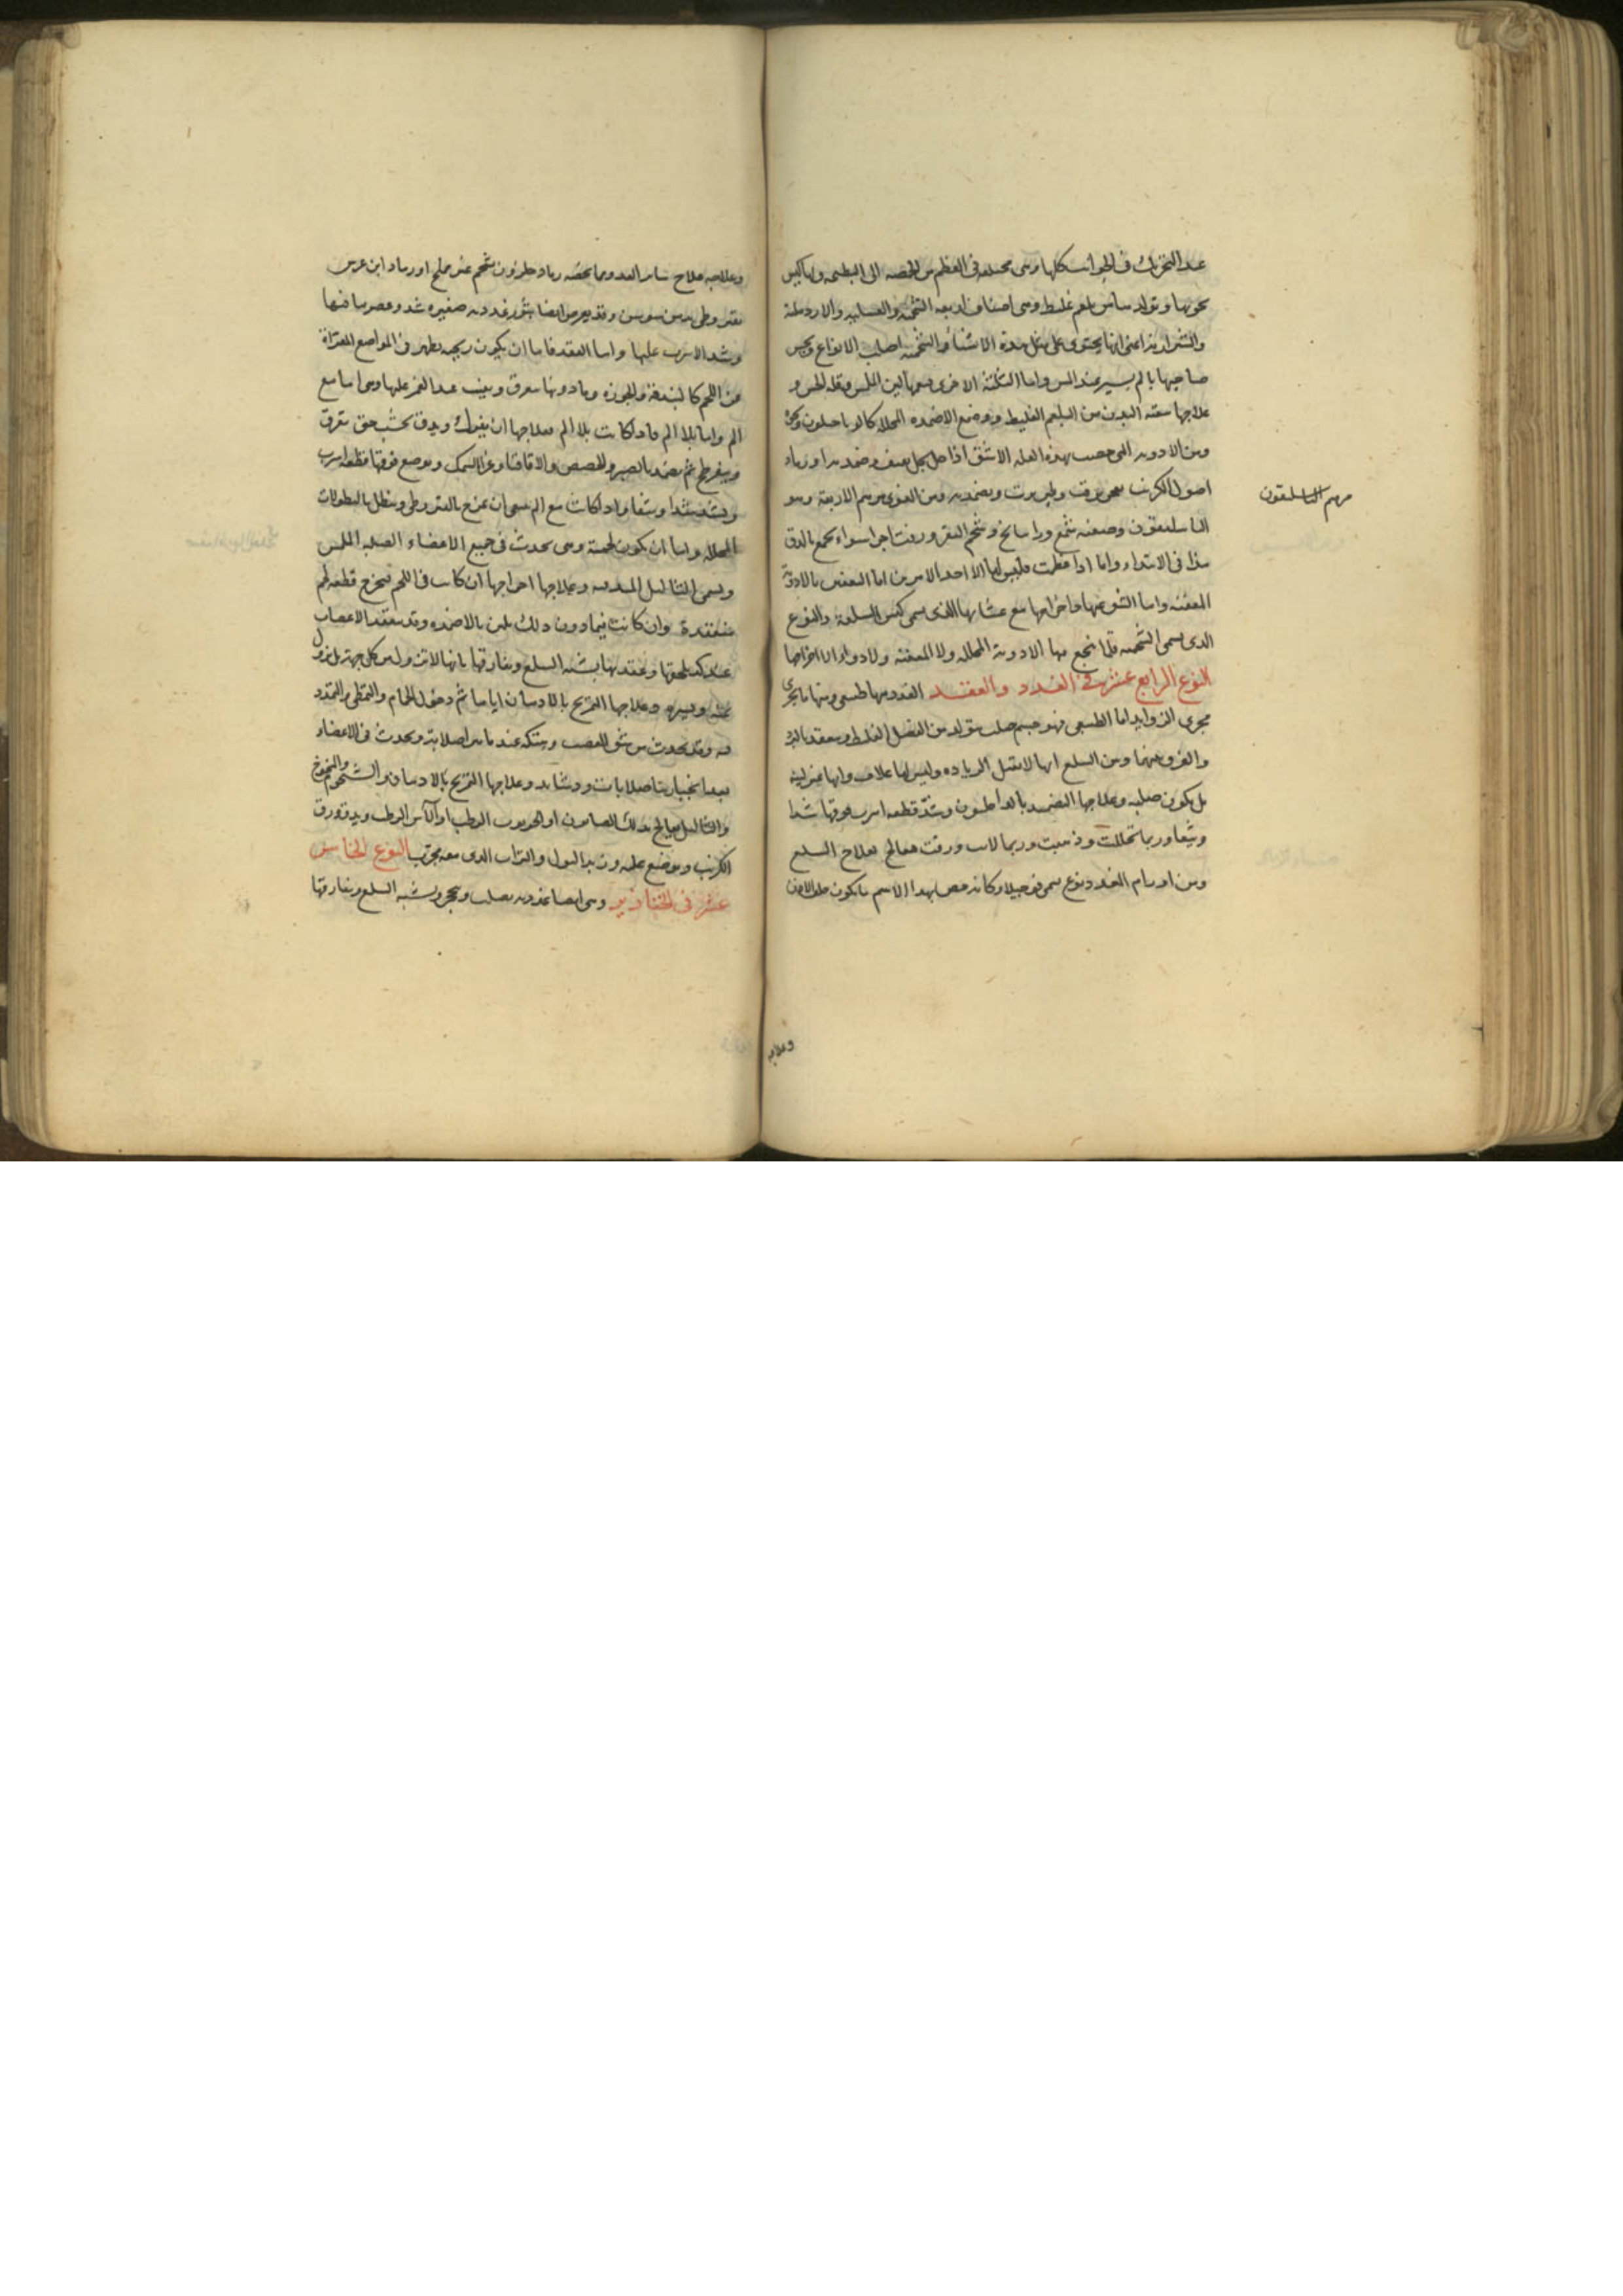 عند التحريك في الجوانب كلها وهي مختلفة في العظم من الحمصة الى البطيخة ولها كيس
يحويها وتولدها من بلغم غليظ وهي اصناف اربعة الشحمية والعسلية والاردهالية
والشيرازية اعني انها يحتوي على مثل هذه الاشياء والشحمية اصلب الانواع ويحس
صاحبها بالم يسير عند المس واما الثلثة الاخرى فيعمها لين اللمس وقلة الحس و
علاجها تنقية البدن من البلغم الغليظ ووضع الاضمدة المحللة كالداخليون ونحوه
ومن الادوية التي تخص بهذه العلة الاشق اذا حل بخل وضمد به او رماد
اصول الكرنب يعجن بزفت ويضمد به ومن القوي مرهم الاربعة وهو
الباسليقون وصفته شمع وراتيانج وشحم البقر وزفت اجزا سواء يجمع بالدق
هذا في الابتداء واما اذا عظمت فليس لها الا احد الامرين اما التعفين بالادوية
المعفنة واما الشق عنها واخراجها مع غشائها الذي يسمى كيس السلعة والنوع
الذي يسمى الشحمية قلما ينجع فيها الادوية المحللة ولا المعفنة ولا دواء الا اخراجها
النوع الرابع عشر في الغدد والعقد الغدد منها طبيعي ومنها ما يجري
مجرى الزوايد اما الطبيعي فهو جسم صلب يتولد من الفضل الغليظ وينعقد بالبرد
والفرق بينهما وبين السلع انها لا تقبل الزيادة وليس لها غلاف وانها غير لينة
بل يكون صلبة وعلاجها التضميد بالداخليون وشد قطعة اسرب فوقها شدا
وثيقا وربما تحللت وذهبت وربما لانت ورقت فتعالج بعلاج السلع
ومن اورام الغدد نوع يسمى فوجيلا وكانه خص بهذا الاسم ما يكون خلف الاذن
مرهم الباسليقون
وعلاجه
وعلاجه علاج ساير الغدد ومما يخصه رماد حلزون بشحم غير مملح او رماد ابن عرس
بقيروطي بدهن سوسن وقد يعرض ايضا بثور غددية صغيرة شد وعصر ما فيها
وشد الاسرب عليها واما العقد فاما ان يكون ريحية يظهر في المواضع المعراة
عن اللحم كالبندقة والجوزة وما دونها تفرق وتغيب عند الغمز عليها وهي اما مع
الم واما بلا الم فاذا كانت بلا الم فعلاجها ان يفرك ويدق بخشب حتى تتفرق
وينفرطح ثم يضمد بالصبر والحضض والاقاقيا وغرا السمك ويوضع فوقها قطعة اسرب
ويشد شدا وثيقا واذا كانت مع الم فينبغي ان تمرخ بالقيروطي وينطل بالنطولات
المحللة واما ان يكون لحمية وهي تحدث في جميع الاعضاء الصلبة الملس
ويسمى الثآليل العدسية وعلاجها اخراجها ان كانت في اللحم فيخرج قطعة لحم
منعقدة وان كانت فيما دون ذلك يلين بالاضمدة وقد ينعقد الاعصاب
عند كد يلحقها وعقدتها يشبه السلع ويفارقها بانها لا تنزول من كل جهة بل تزول
يمنة ويسرة وعلاجها التمريخ بالادهان اياما ثم دخول الحمام والتمطي والتمدد
فيه وقد يحدث من شق العصب وهتكه عند ما يبرأ صلابة ويحدث في الاعضاء
بعد انجبارها صلابات ودشابد وعلاجها التمريخ بالادهان والشحوم والمخوخ
والثآليل يعالج بدلك الصابون او الخرنوب الرطب او الآس الرطب ويدق ورق
الكرنب ويوضع عليه وزبد البول والتراب الذي معه مجرب النوع الخامس
عشر في الخنازير وهي ايضا غددية تصلب وتحجر ويشبه السلع ويفارقها